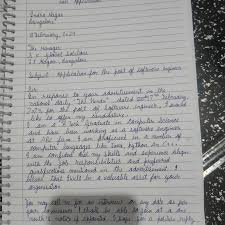 Indra Nagar
Bangalore
8 February, 2024
The Manager
Global Solutions
Nagar, Bangalore
Subject: Application for the post of software engineer
In response to your advertisement in the
national daily "The Hindu" dated 7th February,
2024 for the post of software engineer, I would
like to offer my candidature.
I am a B.Tech Graduate in Computer Science
and have been working as a software engineer
at ABC firm. I am proficient in a number of
computer languages like Java, Python &
I am confident that my skills and experience align
with the job responsibilities and preferred
qualifications mentioned in the advertisement. I
believe that I will be a valuable asset for your
organisation
You may call me for an interview on any date as per
your convenience. I shall be able to join at a one
month's notice if I hope for a positive reply